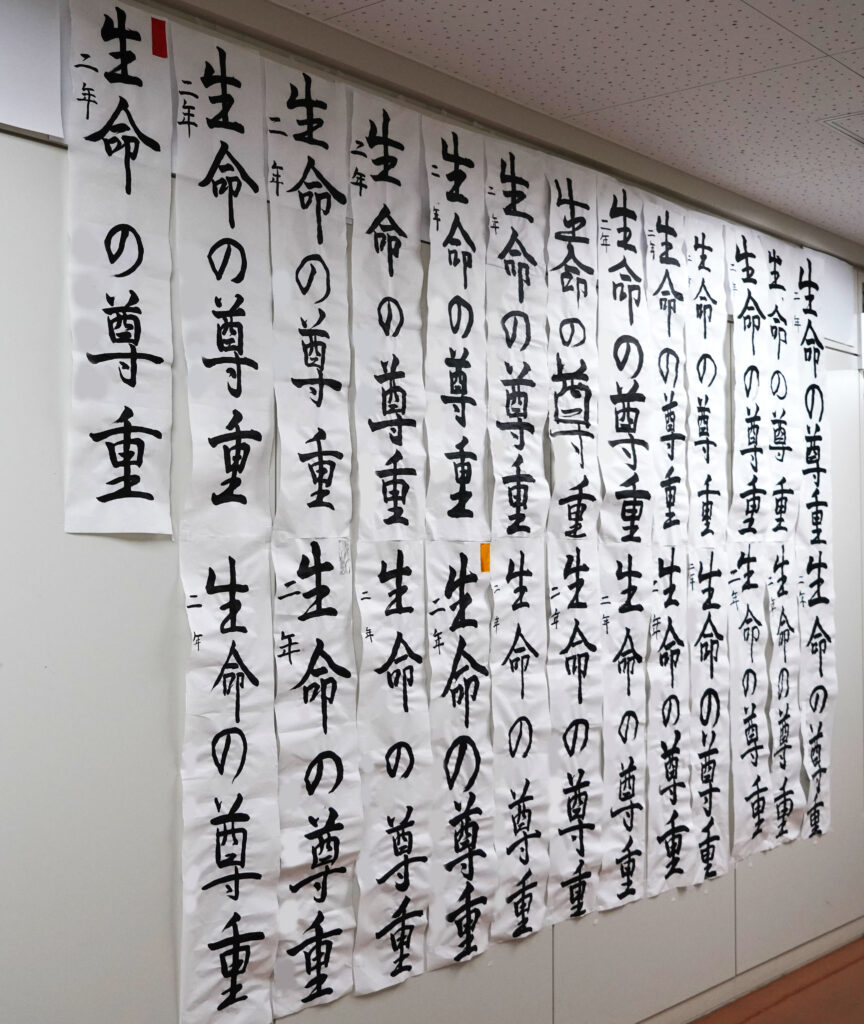 生命の尊重
二年
生命の尊重
生命の尊重
二年
生命の尊重
生命の尊重
二年
生命の尊重
二年
生命の尊重
生命の尊重
二年
生命の尊重
二年
生命の尊重
二年
生命の尊重
二年
生命の尊重
二年
生命の尊重
二年
生命の尊重
二年
生命の尊重
二年
生命の尊重
二年
生命の尊重
二年
生命の尊重
二年
生命の尊重
二年
生命の尊重
二年
生命の尊重
二年
生命の尊重
二年
生命の尊重
二年
生命の尊重
二年
生命の尊重
二年